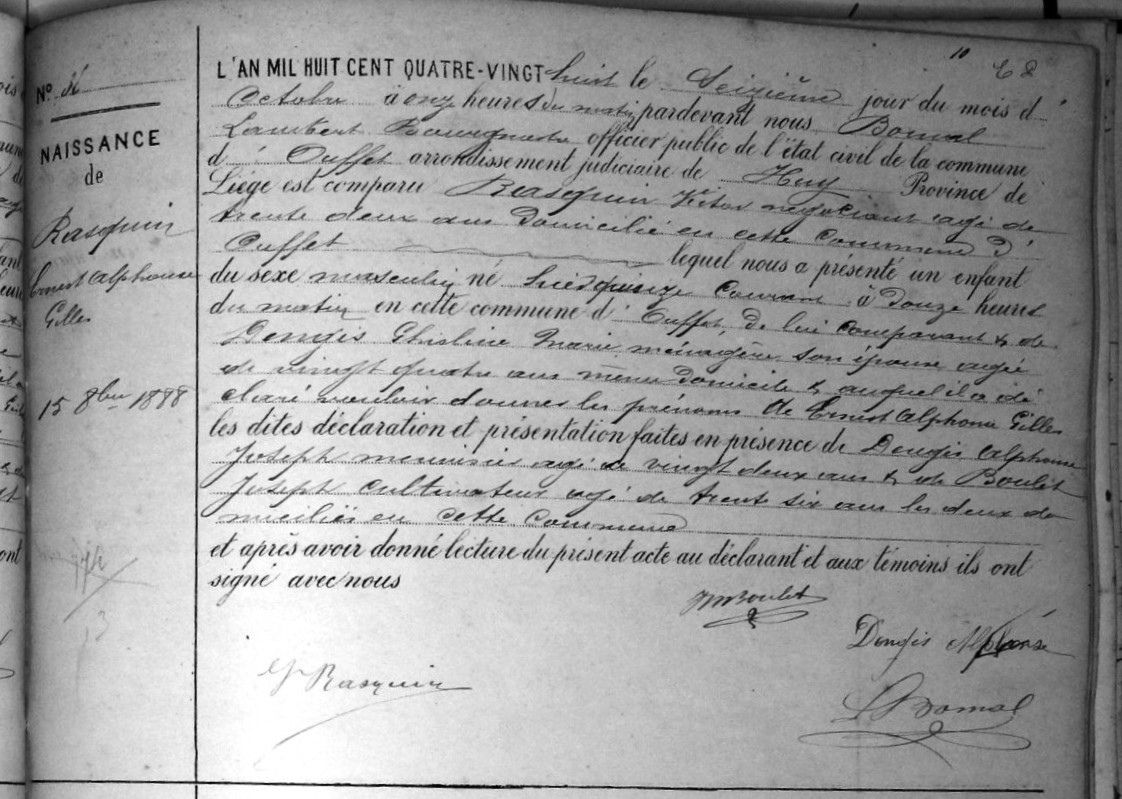 10
N° 36
NAISSANCE
de
Rasquin
Ernest Alphonse
Gilles
15 8bre 1888
L'AN MIL HUIT CENT QUATRE-VINGT huit le Seizième jour du mois d'
Octobre à onze heures du matin pardevant nous Bomal
Lambert Bourgmestre officier public de l'état civil de la commune
d' Ouffet arrondissement judiciaire de Huy Province de
Liége est comparu Rasquin Victor négociant agé de
trente deux ans domicilié en cette commune d'
Ouffet lequel nous a présenté un enfant
du sexe masculin né quinze courant à douze heures
du matin en cette commune d' Ouffet, de lui comparant & de
Dengis Ghisline Marie ménagère son épouse agée
de vingt quatre ans même domicile & auquel il a dé
claré vouloir donner les prénoms de Ernest Alphonse Gilles
les dites déclaration et présentation faites en présence de Dengis Alphonse
Joseph menuisier agé de vingt deux ans & de Boulet
Joseph cultivateur agé de trente six ans les deux do
miciliés en cette commune
et après avoir donné lecture du présent acte au déclarant et aux témoins ils ont
signé avec nous
Boulet
Dengis Alphonse
Rasquin
L Bomal